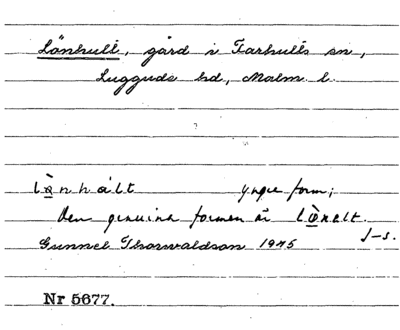 Lönhult, gård i Farhults sn,
Luggude hd, Malm. l.
lö̀nhált yngre form;
den genuina formen är lö̀nelt.
J-s.
Gunnel Thorwaldson 1945
Nr 5677.